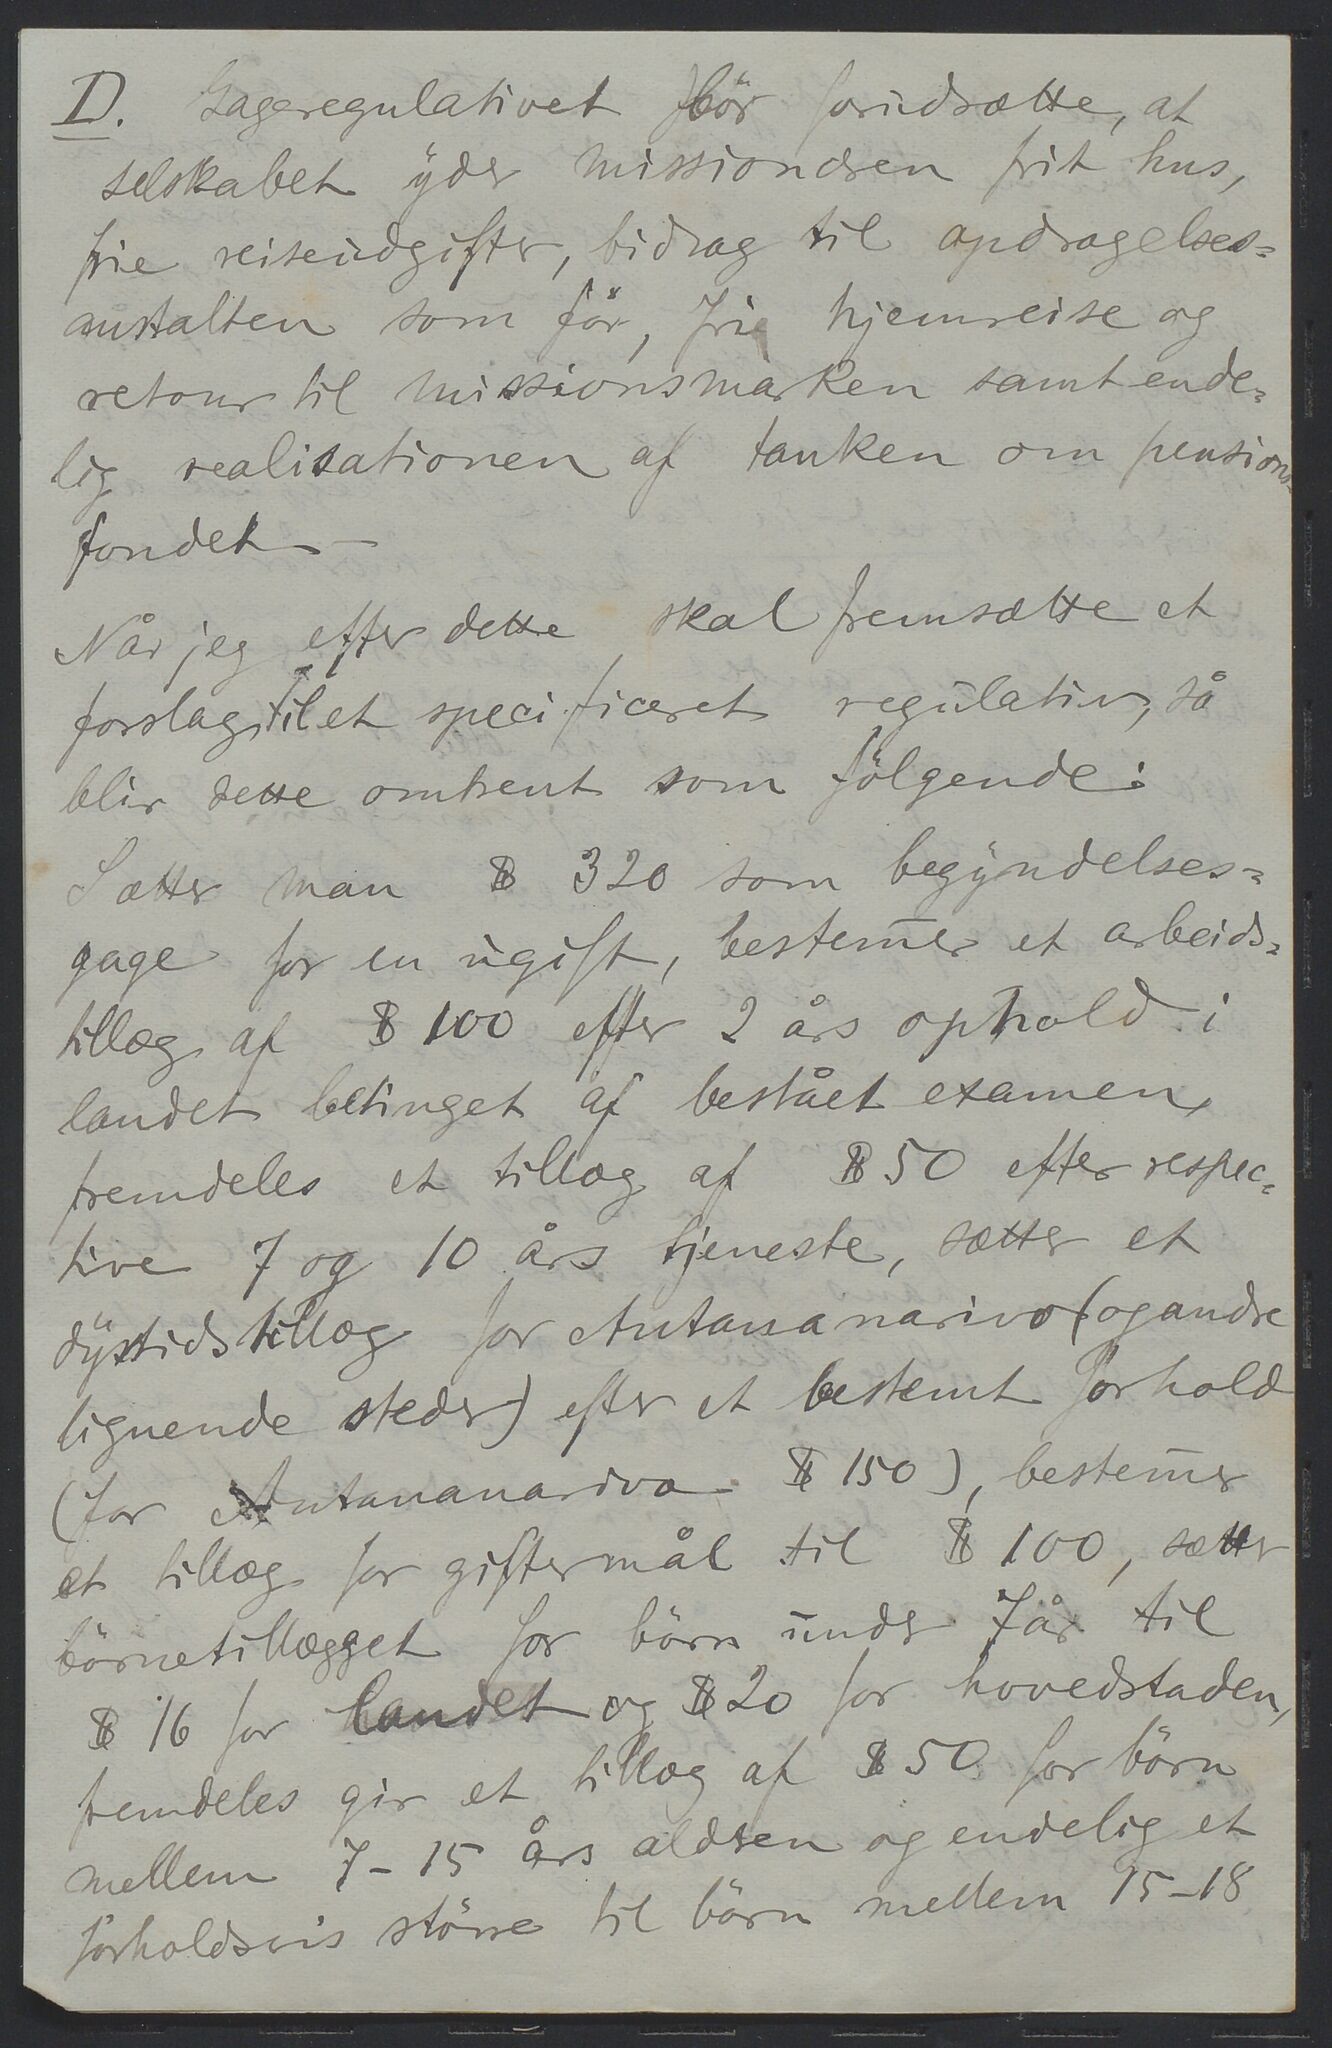 D. Gageregulativet bör forudsætte, at
selskabet yder missionæren frit hus,
frie reiseudgifter, bidrag til opdragelses=
anstalten som för, fri hjemreise og
retour til missionsmarken samt ende=
lig realisationen af tanken om pensions=
fondet.—
Når jeg efter dette skal fremsætte et
forslag til et specificeret regulativ, så
blir dette omtrent som fölgende:
Sætter man $ 320 som begyndelses=
gage for en ugift, bestem̄er et arbeids=
tillæg af $ 100 efter 2 års ophold i
landet betinget af bestået examen,
fremdeles et tillæg af $ 50 efter respec=
tive 7 og 10 års tjeneste, sætter et
dyrtidstillæg for Antananarivo (og andre
lignende steder) efter et bestemt forhold
(for Antananarivo $ 150), bestem̄er
et tillæg for giftermål til $ 100, sætter
börnetillægget for börn under 7 år til
$ 16 for landet og $ 20 for hovedstaden,
fremdeles gir et tillæg af $ 50 for börn
mellem 7–15 års alderen og endelig et
forholdsvis större til börn mellem 15–18